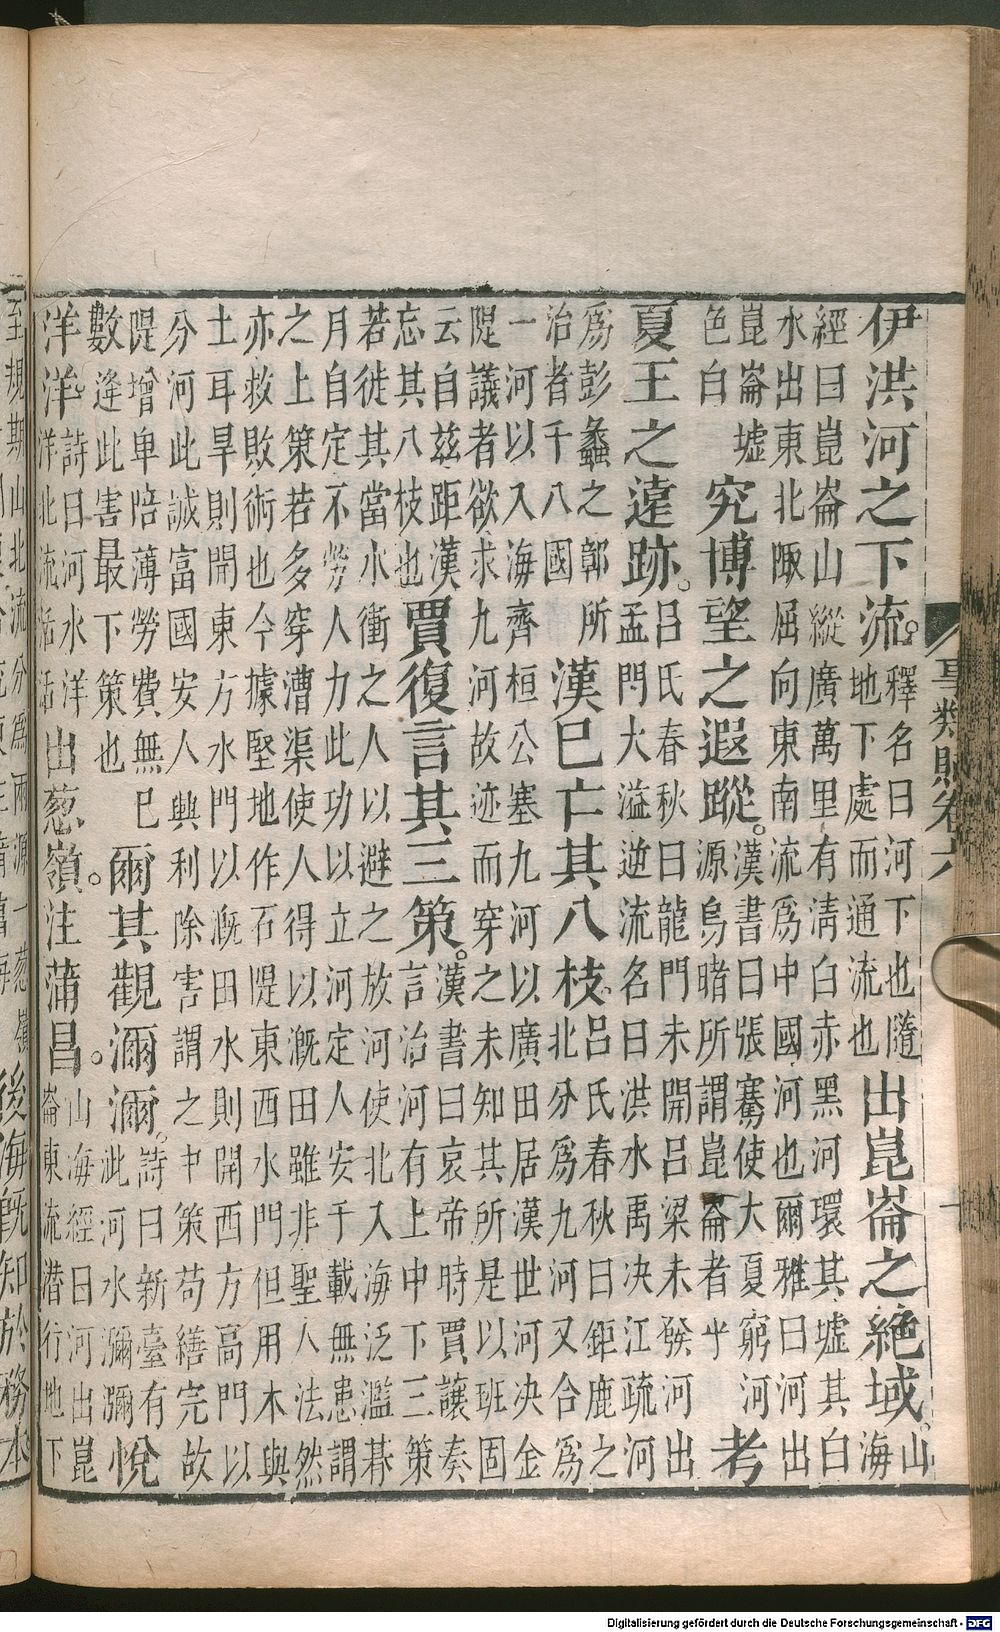 伊洪河之下流。釋名曰河下也隨
地下處而通流也出崑崙之絕域。山
海
經曰崑崙山縱廣萬里有清白赤黑河環其墟其白
水出東北陬屈向東南流為中國河也爾雅曰河出
崑崙墟
色白究博望之遐蹤。漢書曰張騫使大夏窮河
源烏睹所謂崑崙者乎考
夏王之遠跡。呂氏春秋曰龍門未開呂梁未發河出
孟門大溢逆流名曰洪水禹决江疏河
為彭蠡之鄣所
治者千八國漢巳亡其八枝。呂氏春秋曰鉅鹿之
北分為九河又合為
一河以入海齊桓公塞九河以廣田居漢世河决金
隄議者欲求九河故迹而穿之未知其所是以班固
云自茲距漢
忘其八枝也賈復言其三策。漢書曰哀帝時賈讓奏
言治河有上中下三策
若徙其當水衝之人以避之放河使北入海泛濫朞
月自定不勞人力此功以立河定人安千載無患謂
之上策若多穿漕渠使人得以漑田雖非聖人法然
亦救敗術也今據堅地作石隄東西水門但用木與
土耳旱則開東方水門以漑田水則開西方高門以
分河此誠富國安人興利除害謂之中策苟繕完故
隄增卑陪薄勞費無巳
數逢此害最下策也爾其觀瀰瀰。詩曰新臺有
此河水瀰瀰悅
洋洋。詩曰河水洋
洋北流活活出葱嶺。注蒲昌。山海經曰河出崑
崙東流潛行地下
事類賦卷六
十
後海既知於務本
Digitalisierung gefördert durch die Deutsche Forschungsgemeinschaft - DFG